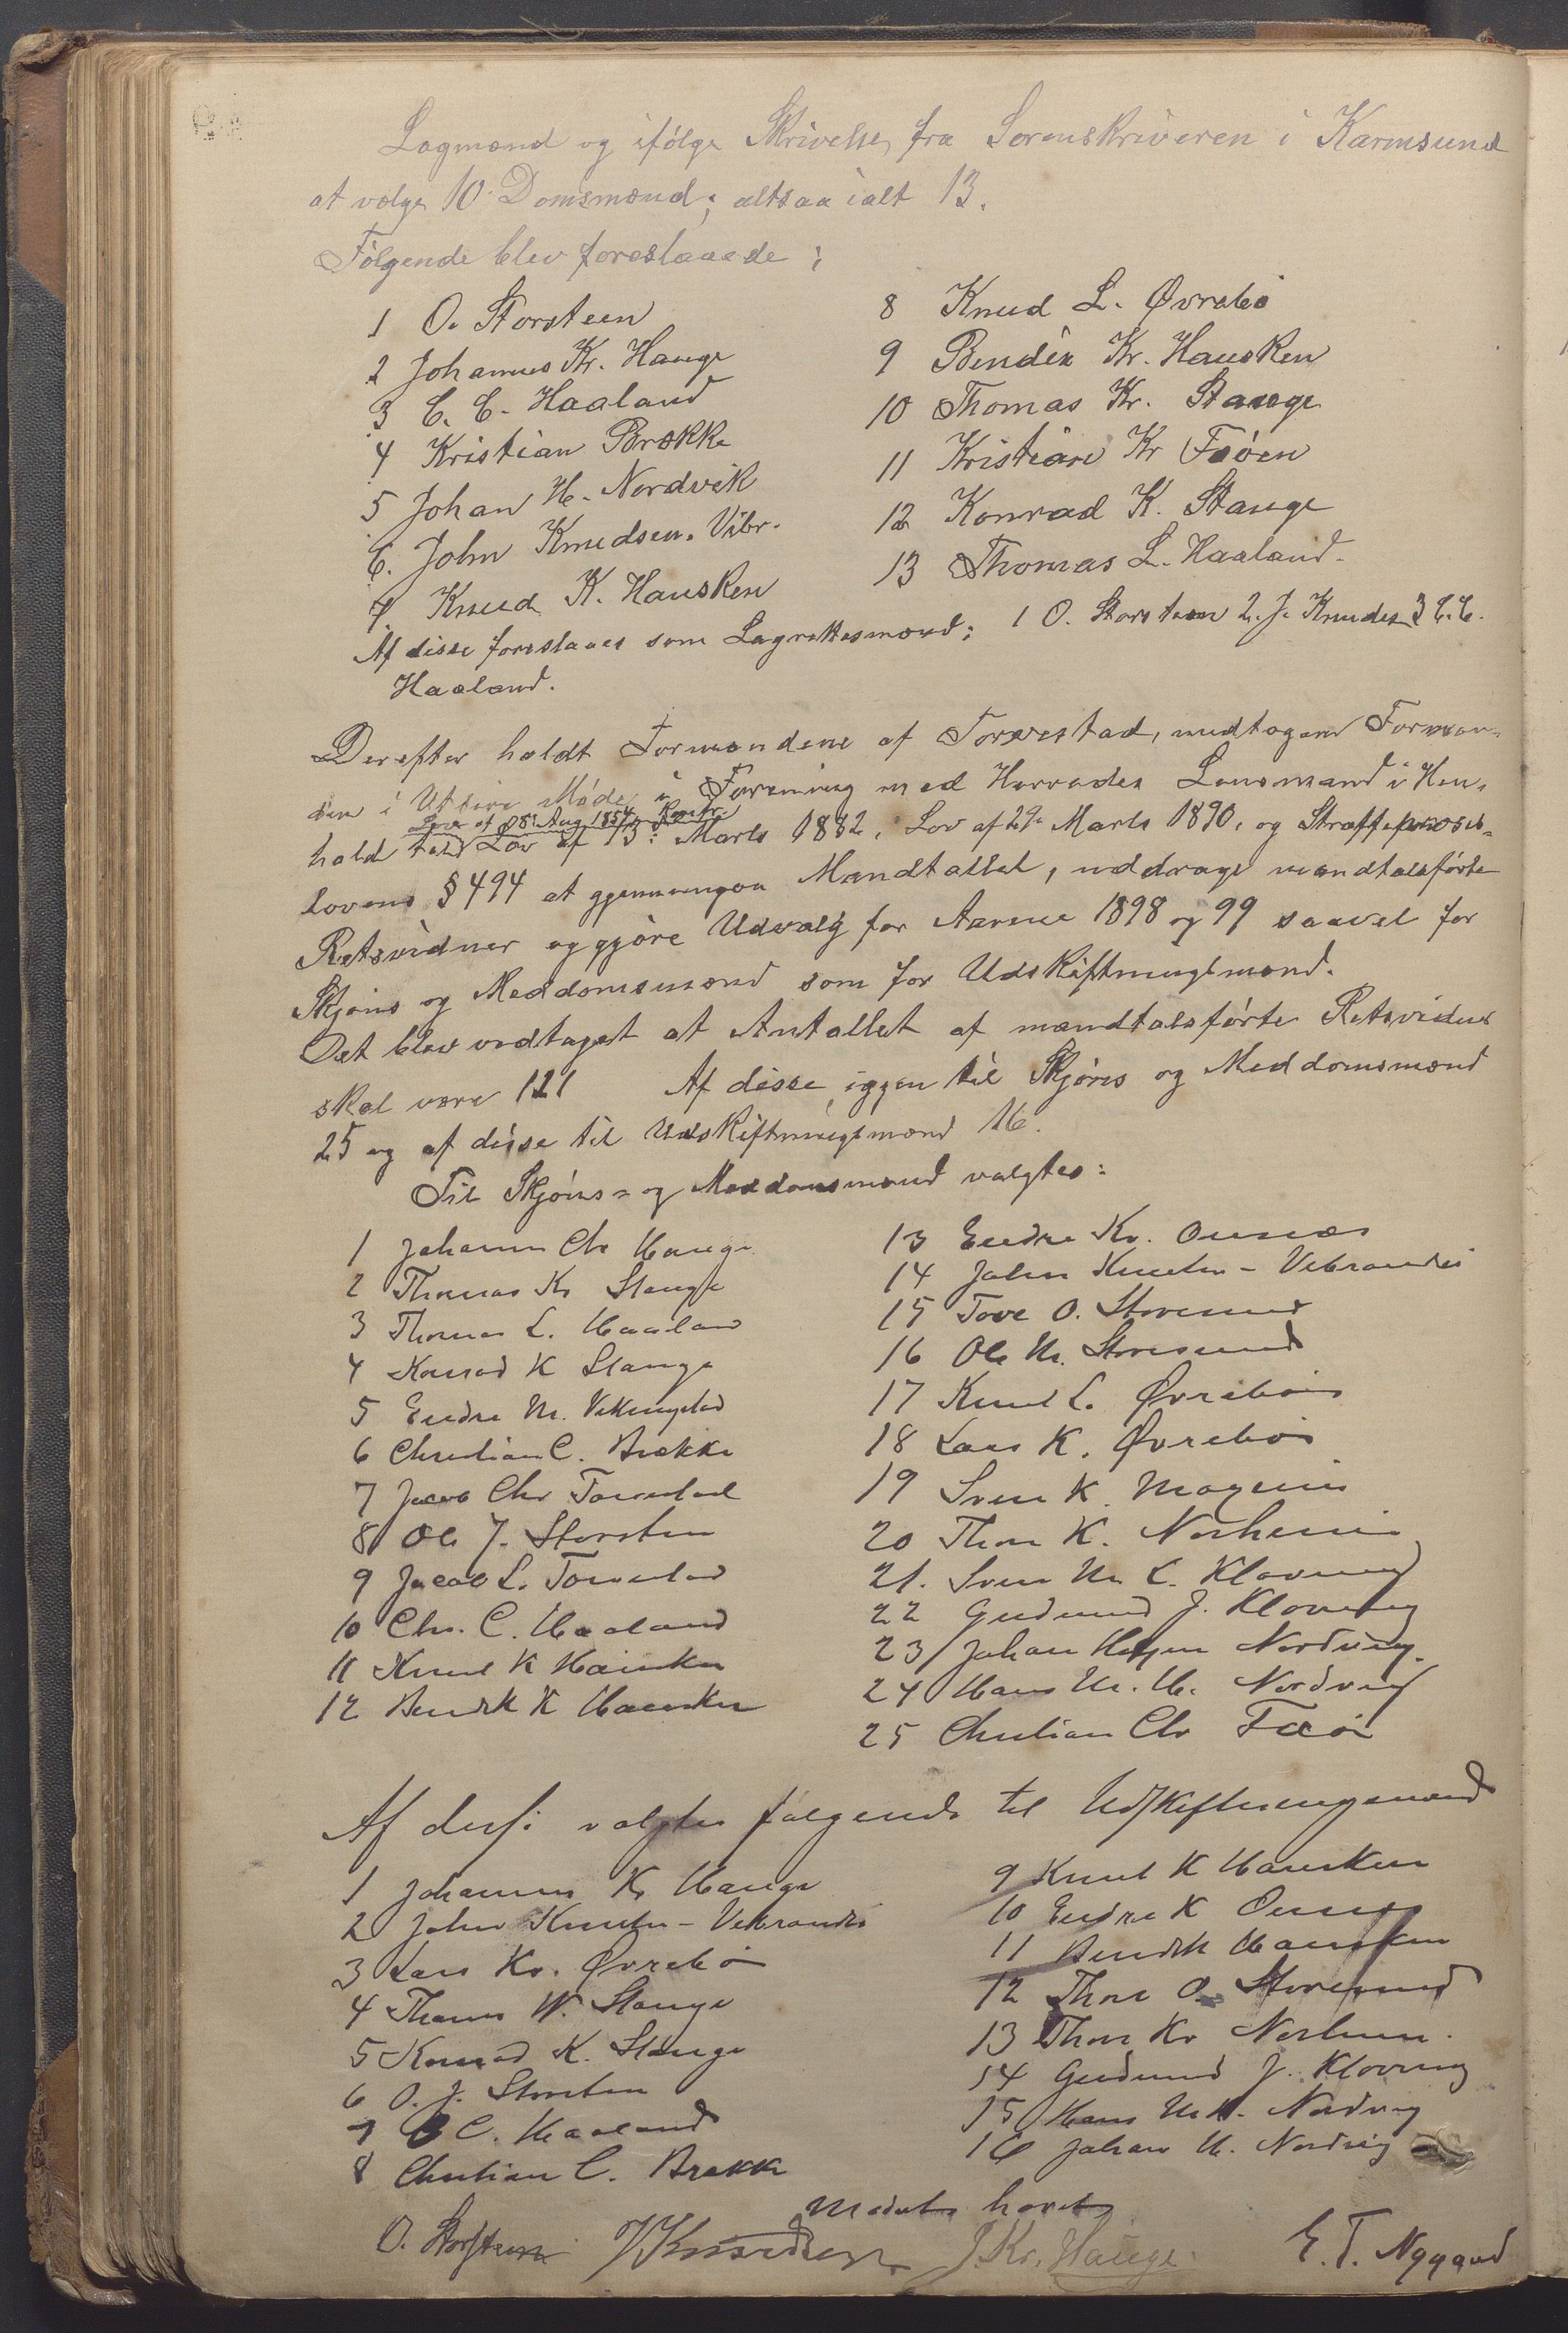 Lagmænd og ifølge Skrivelse fra Sorenskriveren i Karmsund
at vælge 10 Domsmænd; altsaa ialt 13.
Følgende blev foreslaaede:
1 O. Storsteen
2 Johannes Kr. Hauge
3 C. C. Haaland
4 Kristian Brække
5 Johan H. Nordvik
6. John Knudsen. Vibr.
7 Knud K. Hausken
8 Knud L. Øvrebö
9 Bendix Kr. Hausken
10 Thomas Kr. Stange
11 Kristian Kr Fæøen
12 Konrad K. Stange
13 Thomas L. Haaland.
Af disse foreslaaes som Lagrettesmænd: 1 O. Storsteen 2. J. Knudsen 3 C. C.
Haaland.
Derefter holdt Formændene af Torvestad, undtagen Forman-
den i Utsire Møde i Forening med Herredes Lensmand i Hen-
Lov af 28 Aug 1854
hold til Lov af 13: Marts 1882, Lov af 29 Marts 1890, og Straffeproces-
lovens § 494 at gjennemgaa Mandtallet, uddrage mandtalsførte
Retsvidner og gjøre Udvalg for Aarene 1898 og 99 saavel for
Skjøns og Meddomsmænd som for Udskiftningsmænd.
Det blev vedtaget at Antallet af mandtalsførte Retsvidner
skal være 121 Af disse igjen til Skjøns og Meddomsmænd
25 og af disse til Udskiftningsmænd 16.
Til Skjøns- og Meddomsmænd valgtes:
1 Johannes Chr Hauge
2 Thomas Kr Stange
3 Thomas L. Haaland
4 Konrad K Stange
5 Endre M. Vikingstad
6 Christian C. Brække
7 Jacob Chr Torvestad
8 Ole J. Storsten
9 Jacob L. Torvestad
10 Chr. C. Haaland
11 Knud K Hausken
12 Bendik K Hausken
13 Endre Kr. Osnes
14 John Knutsen - Vibrandsø
15 Tore O. Storesund
16 Ole M. Storesund
17 Knud L. Øvrebø
18 Lars K. Øvrebø
19 Sven K.
20 Thore K. Norheim
21. Sven M. L. Klovning
22 Gudmund J. Klovning
23 Johan Nordvig
24 Hans M. H. Nordvig
25 Christian Chr Fæø
Af disse valgtes følgende til Udskiftningsmænd
1 Johannes K. Hauge
2 John Knutsen - Vibrandsø
3 Lars Kr. Øvrebø
4 Thomas Stange
5 Konrad K. Stange
6 O. J. Storsten
7 C C. Haaland
8 Christian C. Brekke
9 Knud K Hausken
10 Endre K Osnes
11 Bendik Hausken
12 Thore O. Storesund
13 Thore Kr Norheim.
14 Gudmund J. Klovning
15 Hans M. H. Nordvig
16 Johan H. Nordvig
Mødet hævet
O. Storsteen J Knudsen J. Kr. Hauge. E. T. Nygaard